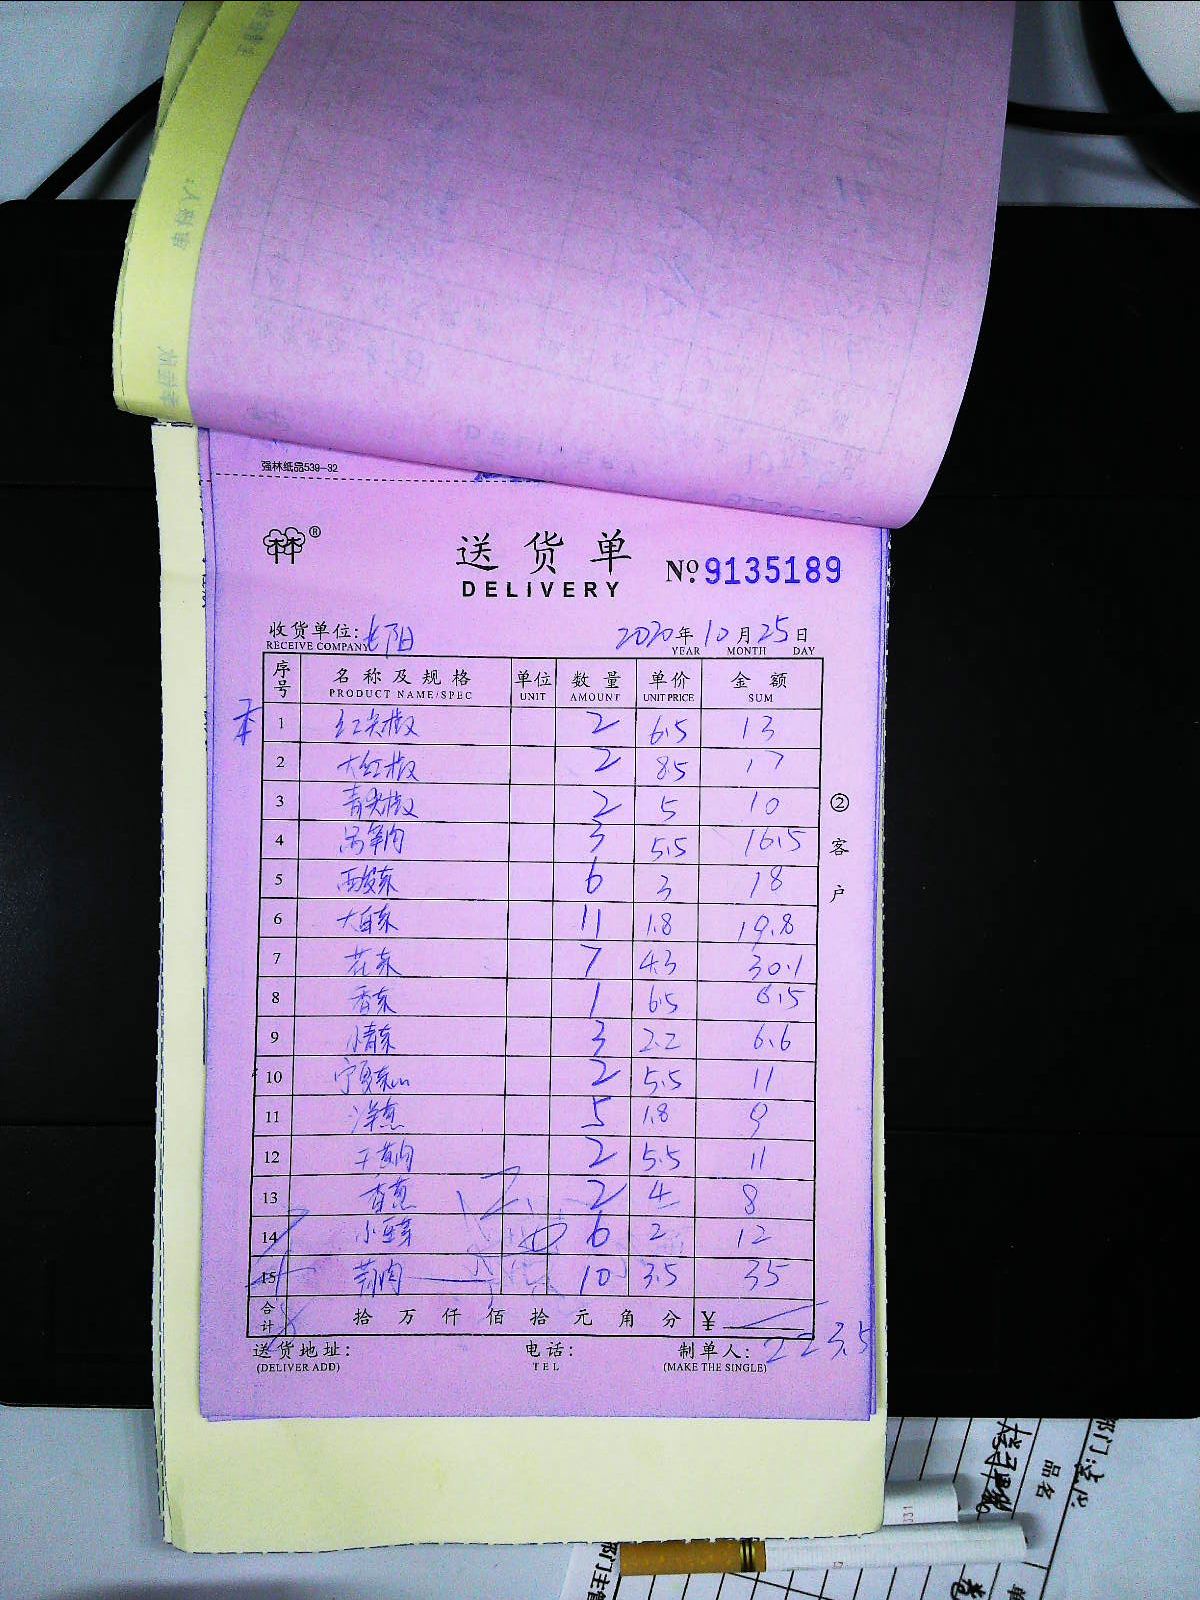 强林纸品539-32
林®
送货单
DELIVERY
№ 9135189
收货单位: 长阳
RECEIVE COMPANY
2020年10月25日
YEAR MONTH DAY
序号 名称及规格 单位 数量 单价 金额
PRODUCT NAME/SPEC UNIT AMOUNT UNIT PRICE SUM
1 红尖椒 2 6.5 13
2 大红椒 2 8.5 17
3 青尖椒 2 5 10
4 3 5.5 16.5
5 6 3 18
6 大白菜 11 1.8 19.8
7 花菜 7 4.3 30.1
8 香菜 1 6.5 6.5
9 小青菜 3 2.2 6.6
10 2 5.5 11
11 洋葱 5 1.8 9
12 2 5.5 11
13 香葱 2 4 8
14 小豆芽 6 2 12
15 10 3.5 35
合计 拾万仟佰拾元角分 ¥
223.5
送货地址: 电话: 制单人:
(DELIVER ADD) TEL (MAKE THE SINGLE)
②客户
品名